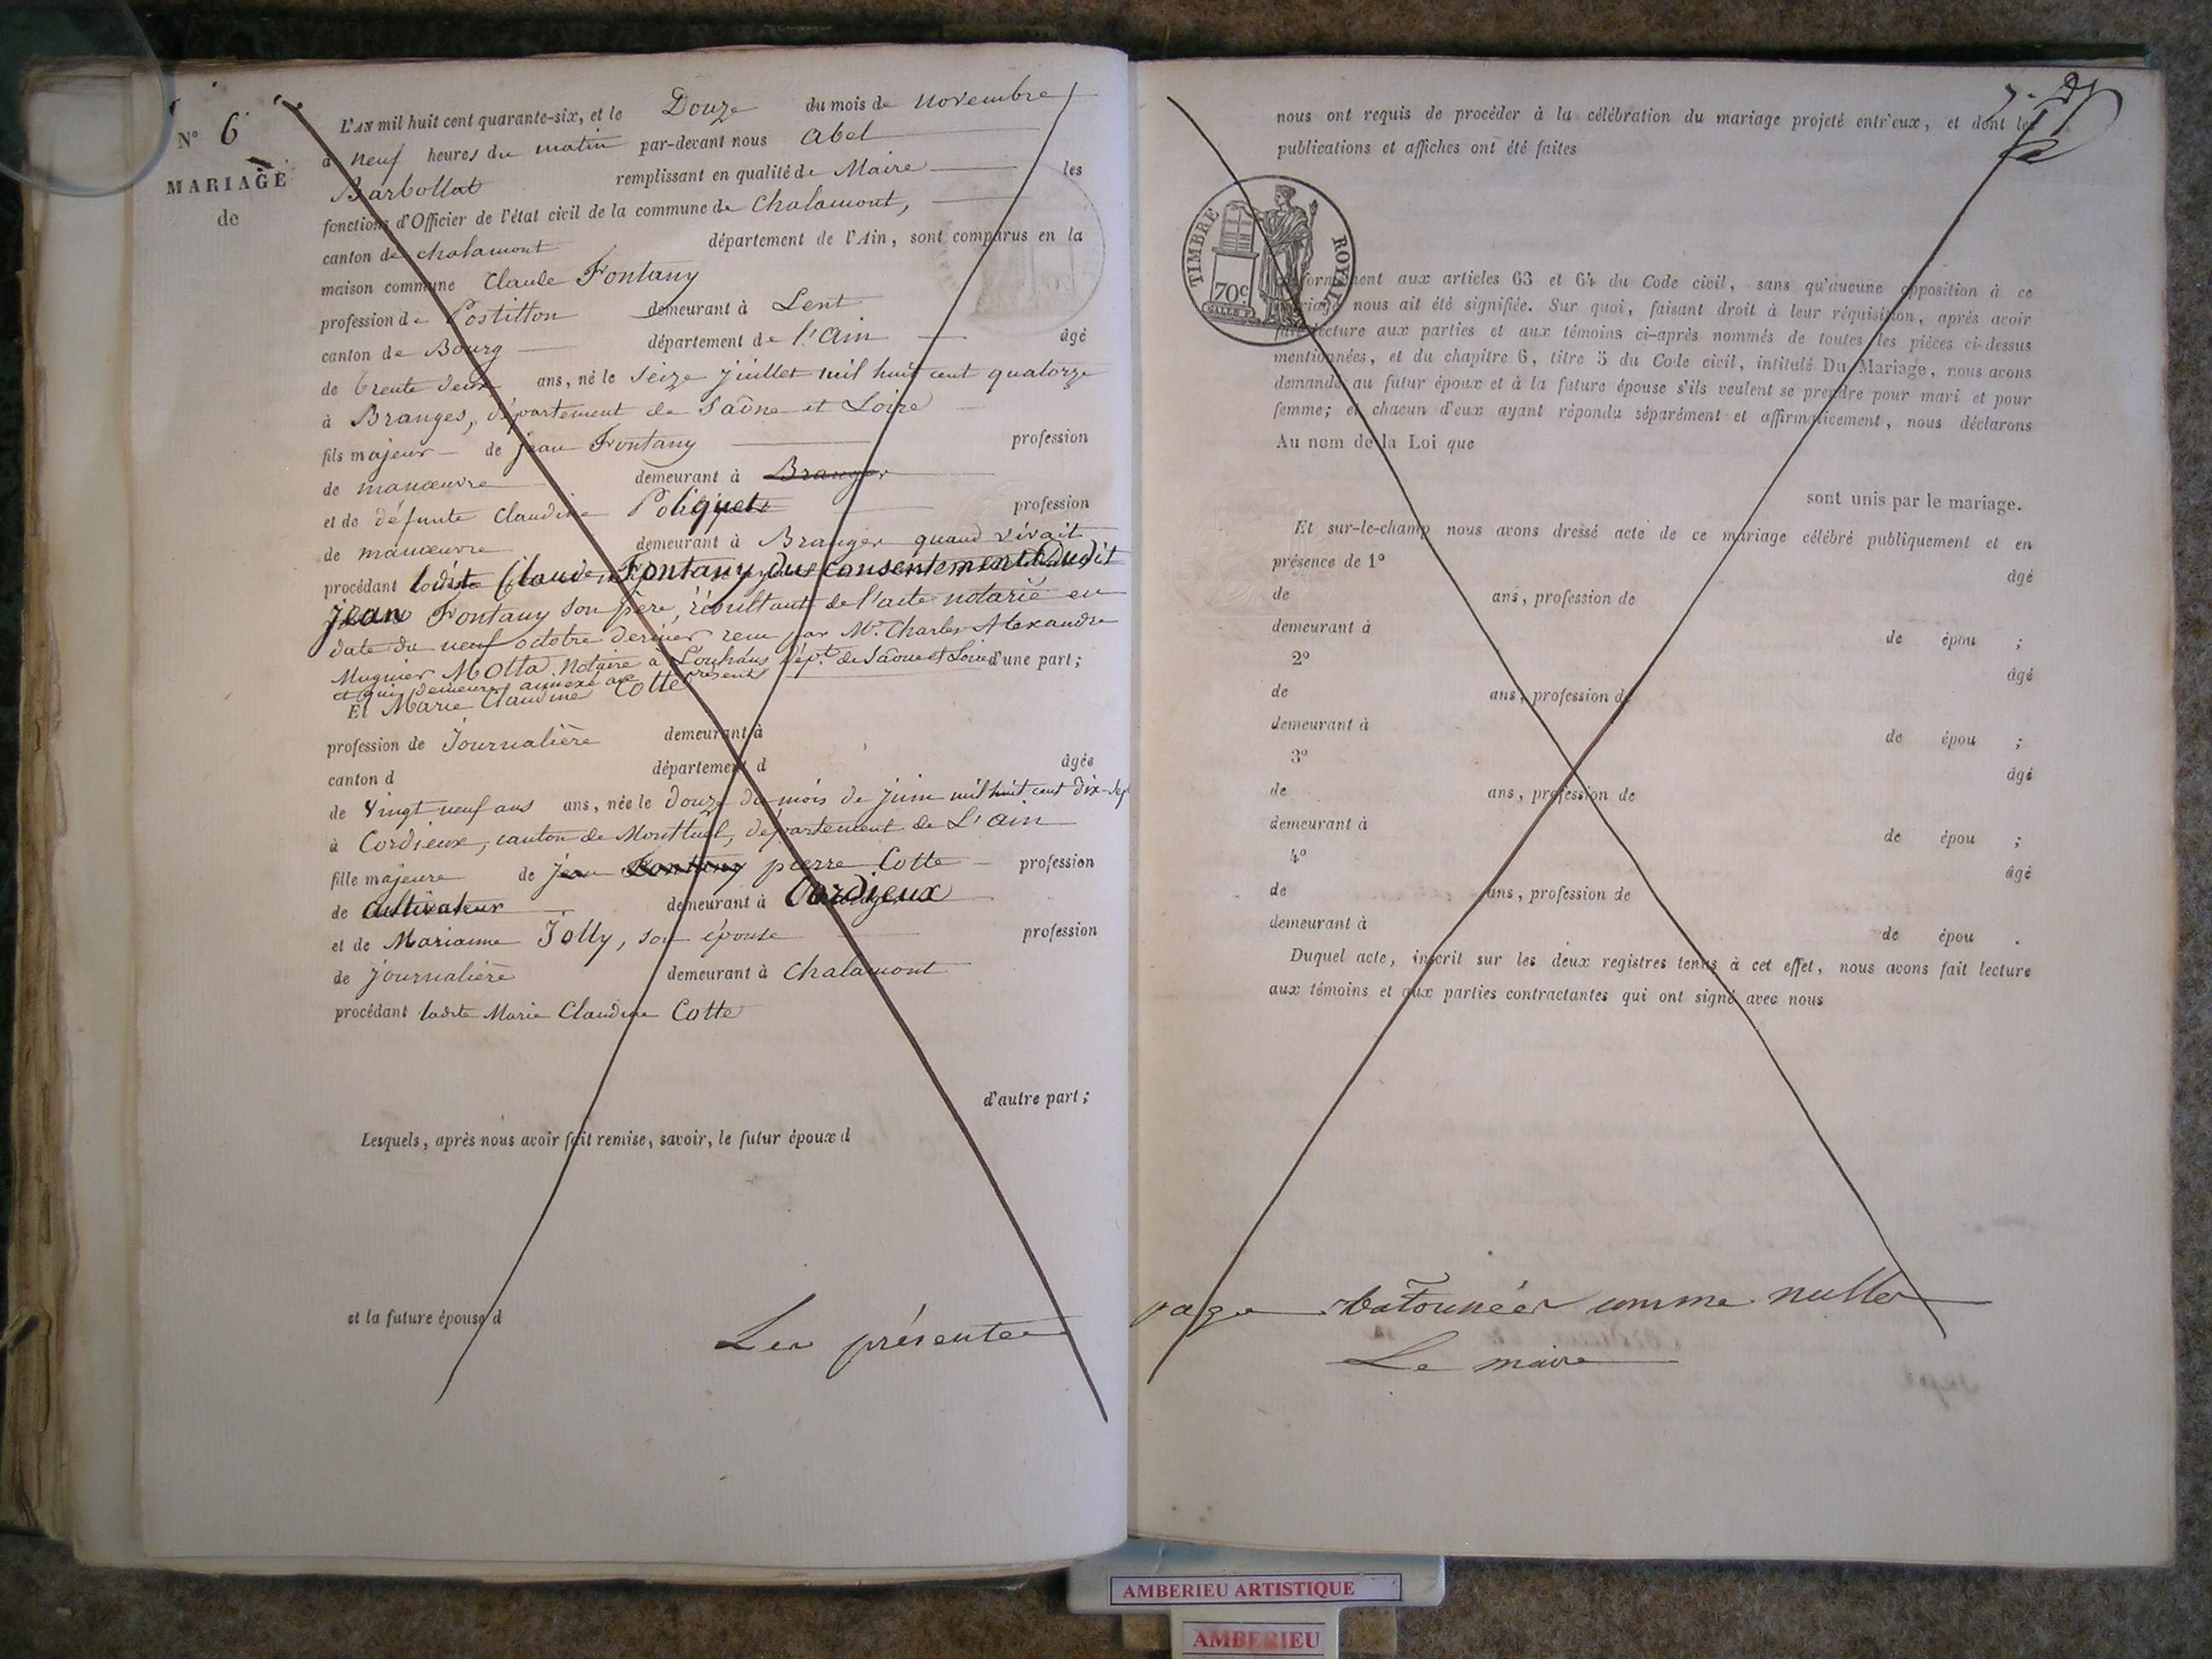 N° 6
MARIAGE
de
L'AN mil huit cent quarante-six, et le Douze du mois de novembre
à neuf heures du matin par-devant nous abel
Barbollat remplissant en qualité de Maire les
fonctions d'Officier de l'état civil de la commune de Chalamont,
canton de chalamont département de l'Ain, sont comparus en la
maison commune Claude Fontany
profession de Postillon demeurant à Lent
canton de Bourg département de l'Ain âgé
de trente deux ans, né le seize juillet mil huit cent quatorze
à Branges, département de Saône et Loire
fils majeur de jean Fontany profession
de manœuvre demeurant à Branges
et de défunte Claudine profession
de manœuvre demeurant à Branges quand vivait
procédant ledit Claude Fontany du consentement dudit
jean Fontany son père, résultant de l'acte notarié en
date du neuf octobre dernier reçu par Mr. Charles Alexandre
Mugnier Motta Notaire à Louhans dépt. de Saône et Loire d'une part;
et qui demeure annexé aux présentes
Et Marie Claudine Cotte
profession de Journalière demeurant à
canton d département d âgée
de Vingt neuf ans ans, née le douze du mois de juin mil huit cent dix-sept
à Cordieux, canton de Montluel, département de L'ain
fille majeure de jean Fontany pierre Cotte profession
de Cultivateur demeurant à Cordieux
et de Marianne Jolly, son épouse profession
de journalière demeurant à Chalamont
procédant ladite Marie Claudine Cotte
d'autre part;
Lesquels, après nous avoir fait remise, savoir, le futur époux d
et la future épouse d
Les présentes
nous ont requis de procéder à la célébration du mariage projeté entr'eux, et dont les
publications et affiches ont été faites
TIMBRE ROYAL
70c
conformément aux articles 63 et 64 du Code civil, sans qu'aucune opposition à ce
mariage nous ait été signifiée. Sur quoi, faisant droit à leur réquisition, après avoir
fait lecture aux parties et aux témoins ci-après nommés de toutes les pièces ci-dessus
mentionnées, et du chapitre 6, titre 5 du Code civil, intitulé Du Mariage, nous avons
demandé au futur époux et à la future épouse s'ils veulent se prendre pour mari et pour
femme; et chacun d'eux ayant répondu séparément et affirmativement, nous déclarons
Au nom de la Loi que
sont unis par le mariage.
Et sur-le-champ nous avons dressé acte de ce mariage célébré publiquement et en
présence de 1° âgé
de ans, profession de
demeurant à de épou ;
2° âgé
de ans, profession de
demeurant à de épou ;
3° âgé
de ans, profession de
demeurant à de épou ;
4° âgé
de ans, profession de
demeurant à de épou .
Duquel acte, inscrit sur les deux registres tenus à cet effet, nous avons fait lecture
aux témoins et aux parties contractantes qui ont signé avec nous
page batonnées comme nulles
Le maire
AMBERIEU ARTISTIQUE
AMBERIEU